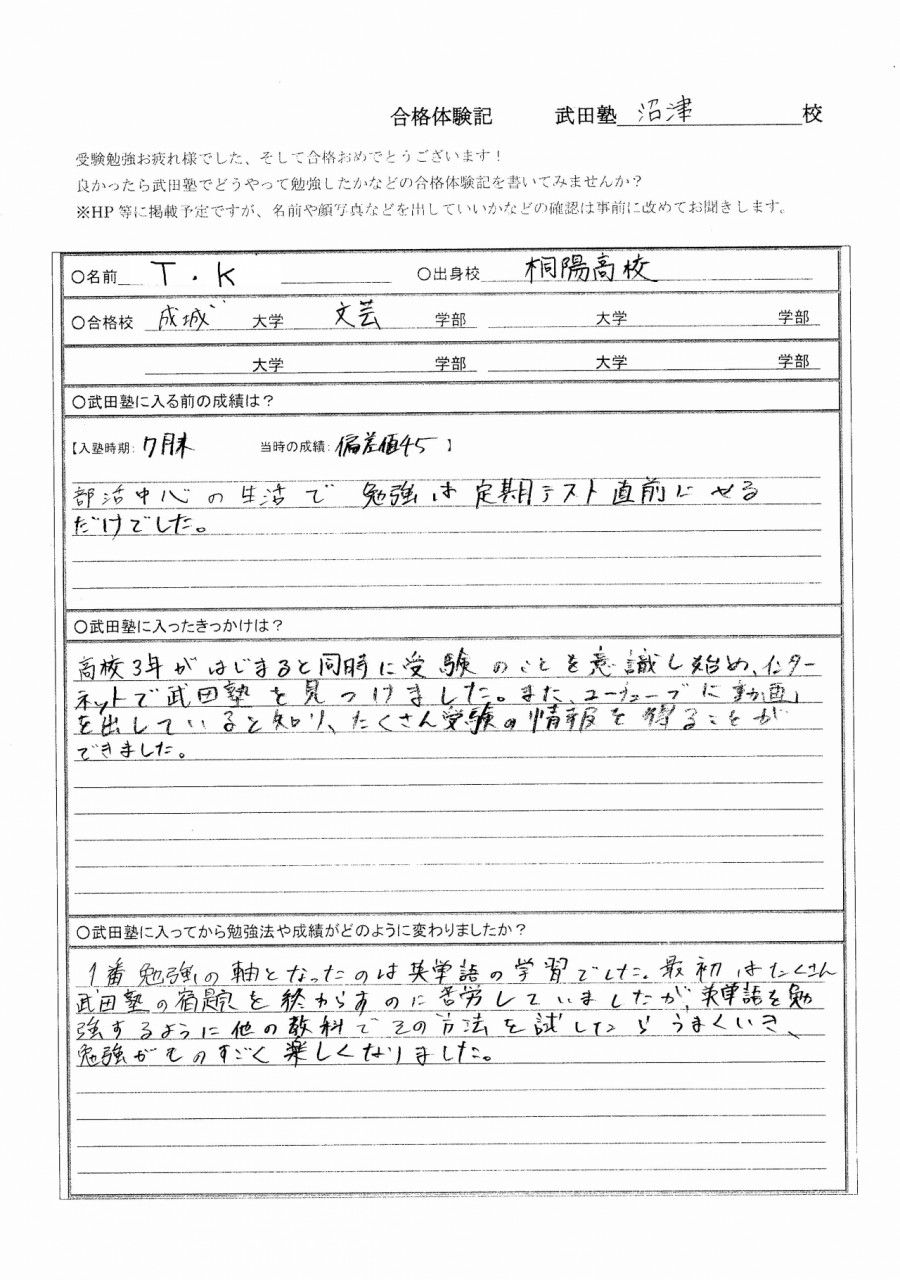 合格体験記 武田塾 沼津 校
受験勉強お疲れ様でした、そして合格おめでとうございます！
良かったら武田塾でどうやって勉強したかなどの合格体験記を書いてみませんか？
※HP 等に掲載予定ですが、名前や顔写真などを出していいかなどの確認は事前に改めてお聞きします。
○名前 T.K ○出身校 桐陽高校
○合格校 成城 大学 文芸 学部 大学 学部
大学 学部 大学 学部
○武田塾に入る前の成績は？
【入塾時期: 7月末 当時の成績: 偏差値45 】
部活中心の生活で 勉強は定期テスト直前にやる
だけでした。
○武田塾に入ったきっかけは？
高校3年がはじまると同時に受験のことを意識し始め、インター
ネットで武田塾を見つけました。また、ユーチューブに動画
を出していると知り、たくさん受験の情報を得ることが
できました。
○武田塾に入ってから勉強法や成績がどのように変わりましたか？
1番勉強の軸となったのは英単語の学習でした。最初はたくさん
武田塾の宿題を終わらすのに苦労していましたが、英単語を勉
強するように他の教科でその方法を試したらうまくいき、
勉強がものすごく楽しくなりました。